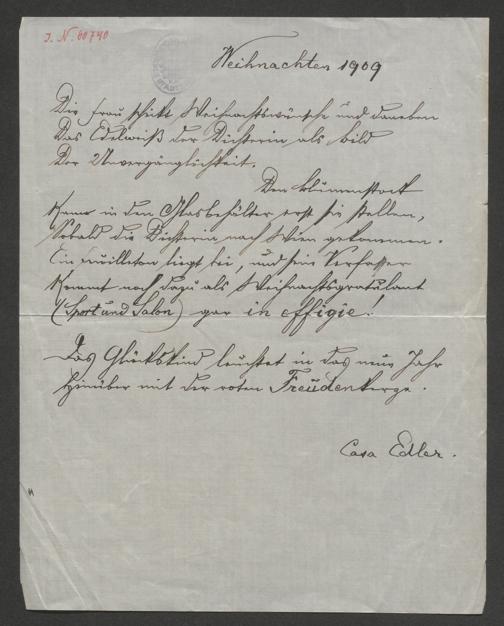 J. N. 60740
Weihnachten 1909
Die Frau schickt Weihnachtswünsche und daneben
Das Edelweiß der Dichterin als Bild
Der Unvergänglichkeit.
Den Blumenstock
Kann in den Glasbehälter erst sie stellen,
Sobald die Dichterin nach Wien gekommen.
Ein Feuilleton liegt bei, und sein Verfasser
Kommt noch dazu als Weihnachtsgratulant
(Sport und Salon) gar in effigie!
Das Glückskind leuchtet in das neue Jahr
Hinüber mit der roten Freudenkerze.
Casa Edler.